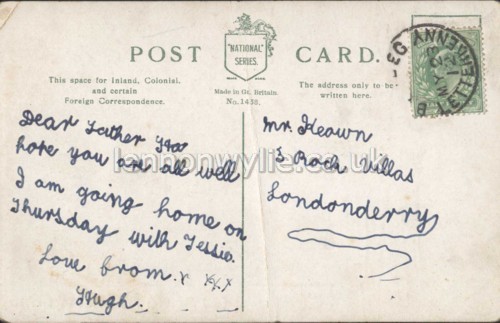 POST CARD.
"NATIONAL" SERIES.
This space for Inland, Colonial,
and certain
Foreign Correspondence.
Made in Gt. Britain.
No. 1438.
The address only to be
written here.
LETTERKENNY
MY 23
12
Dear Father
hope you are all well
I am going home on
Thursday with Tessie.
Love from x x x x
Hugh.
Mr. Keown
5 Rock Villas
Londonderry
lennonwylie.co.uk